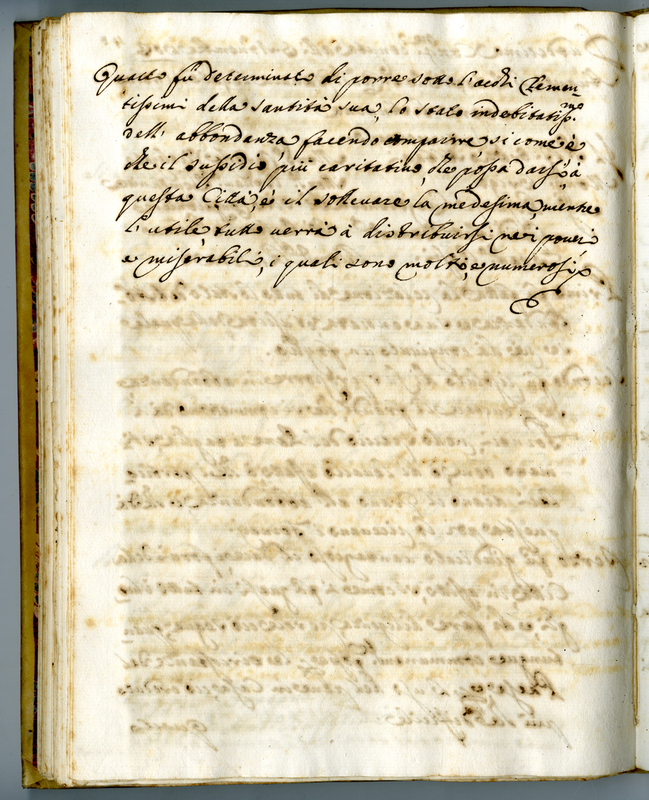 Quarto fù determinato di porre sotto l'occhi Clemen-
tissimi della santità sua, lo stato indebitatiss.mo
dell' abbondanza facendo comparire si come è
che il sussidio più caritativo che possa darsi à
questa Città, è il sollevare la medesima, mentre
l' utile tutto verrà à distribuirsi ne i poveri
e miserabili, i quali sono molti, e numerosi